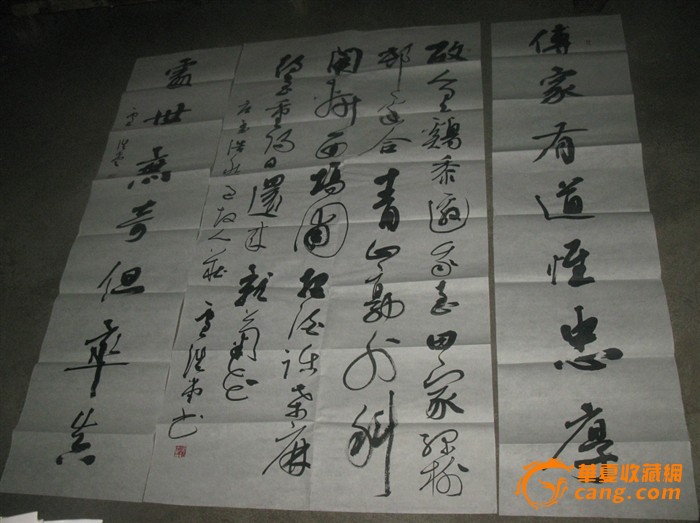 傳家有道惟忠厚
故人具鷄黍邀我至田家綠樹
村邊合青山郭外斜
開軒面場圃把酒話桑麻
待到重陽日還來就菊花
右孟浩然過故人莊
處世無奇但率真
華夏收藏網
cang.com